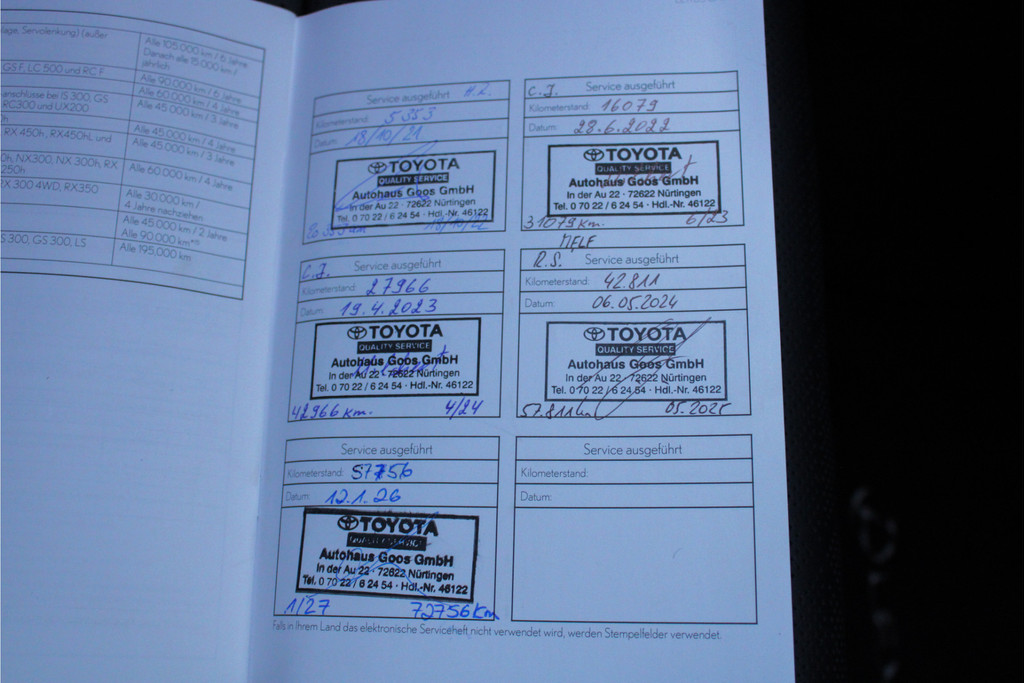 lage, Servolenkung) (außer
Alle 105.000 km / 6 Jahre
Danach alle 15.000 km /
jährlich
GS F, LC 500 und RC F
Alle 90.000 km / 6 Jahre
Alle 60.000 km / 4 Jahre
anschlüsse bei IS 300, GS
RC300 und UX200
Alle 45.000 km / 3 Jahre
Alle 45.000 km / 4 Jahre
RX 450h, RX450hL und
Alle 45.000 km / 3 Jahre
0h, NX300, NX 300h, RX
250h
Alle 60.000 km / 4 Jahre
RX 300 4WD, RX350
Alle 30.000 km /
4 Jahre nachziehen
Alle 45.000 km / 2 Jahre
Alle 90.000 km
S 300, GS 300, LS
Alle 195.000 km
Service ausgeführt
Kilometerstand: 5353
Datum: 18/10/21
TOYOTA
QUALITY SERVICE
Autohaus Goos GmbH
In der Au 22 · 72622 Nürtingen
Tel. 0 70 22 / 6 24 54 · Hdl.-Nr. 46122
20 353 km 18/10/22
C.J. Service ausgeführt
Kilometerstand: 16079
Datum: 28.6.2022
TOYOTA
QUALITY SERVICE
Autohaus Goos GmbH
In der Au 22 · 72622 Nürtingen
Tel. 0 70 22 / 6 24 54 · Hdl.-Nr. 46122
31079 km. 6/23
C.J. Service ausgeführt
Kilometerstand: 27966
Datum: 19.4.2023
TOYOTA
QUALITY SERVICE
Autohaus Goos GmbH
In der Au 22 · 72622 Nürtingen
Tel. 0 70 22 / 6 24 54 · Hdl.-Nr. 46122
42966 km. 4/24
MELF
R.S. Service ausgeführt
Kilometerstand: 42.811
Datum: 06.05.2024
TOYOTA
QUALITY SERVICE
Autohaus Goos GmbH
In der Au 22 · 72622 Nürtingen
Tel. 0 70 22 / 6 24 54 · Hdl.-Nr. 46122
57.811 km 05.2025
Service ausgeführt
Kilometerstand: 57756
Datum: 12.1.26
TOYOTA
QUALITY SERVICE
Autohaus Goos GmbH
In der Au 22 · 72622 Nürtingen
Tel. 0 70 22 / 6 24 54 · Hdl.-Nr. 46122
1/27 72756 Km
Service ausgeführt
Kilometerstand:
Datum:
Falls in Ihrem Land das elektronische Serviceheft nicht verwendet wird, werden Stempelfelder verwendet.